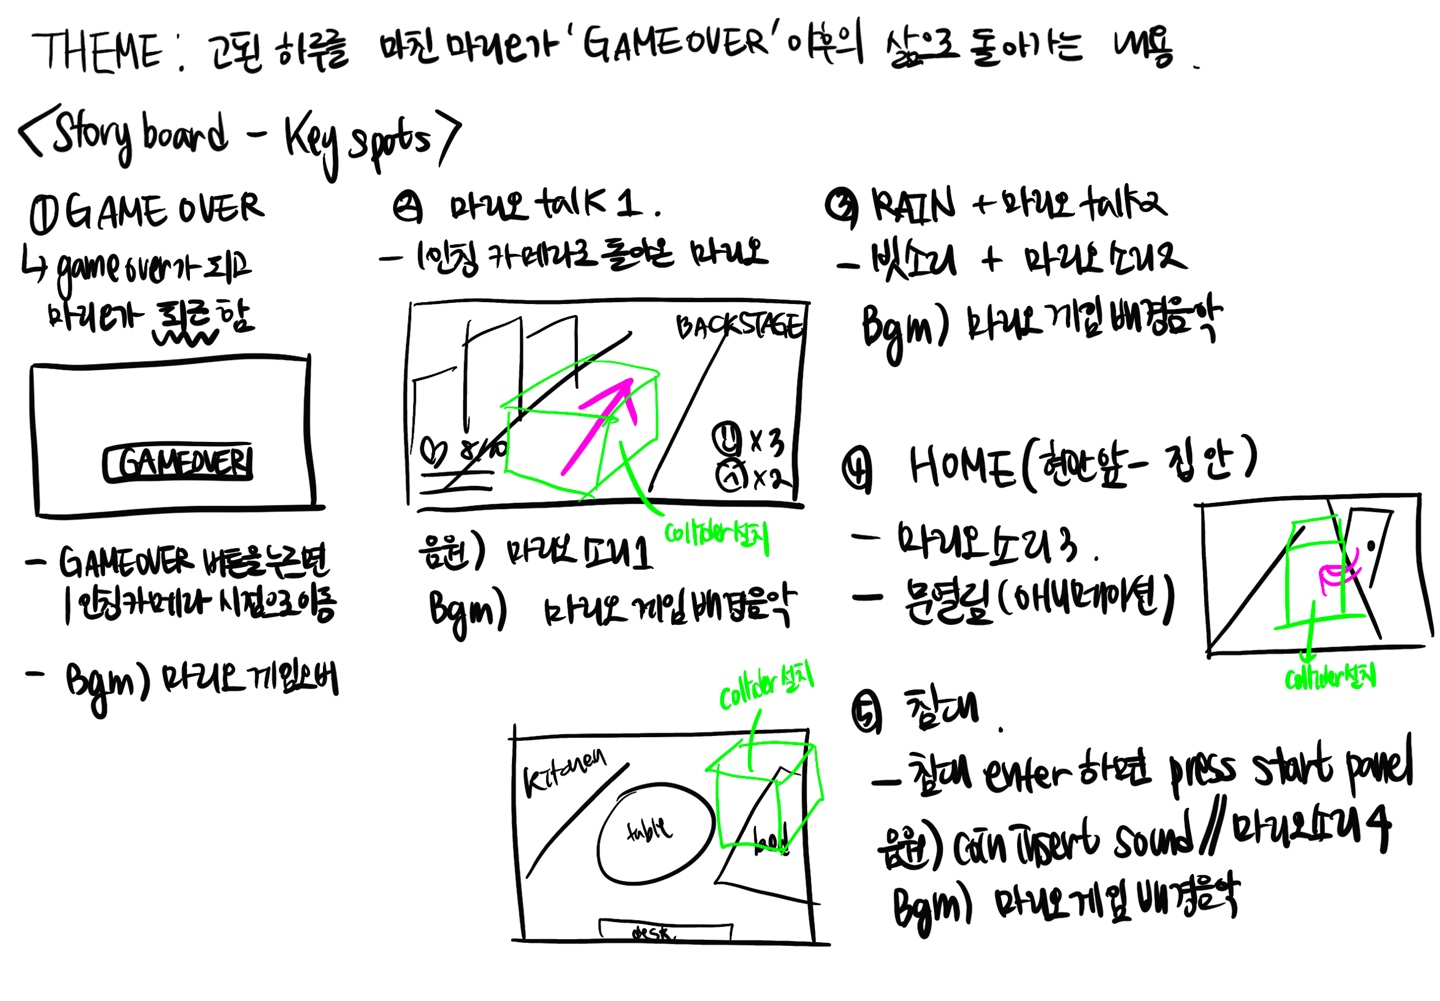 THEME : 고된 하루를 마친 마리오가 'GAMEOVER' 이후의 삶으로 돌아가는 내용.
<Story board - Key spots>
① GAME OVER
↳ game over가 되고
마리오가 퇴근함
GAMEOVER
- GAMEOVER 버튼을 누르면
1인칭 카메라 시점으로 이동
- Bgm) 마리오 게임오버
② 마리오 talk 1.
- 1인칭 카메라로 돌아온 마리오
BACKSTAGE
♡ 8/10
x 3
x 2
collider 설치
음원) 마리오 소리1
Bgm) 마리오 게임 배경음악
③ RAIN + 마리오 talk2
- 빗소리 + 마리오소리2
Bgm) 마리오 게임 배경음악
④ HOME (현관앞 - 집 안)
- 마리오소리 3.
- 문열림 (애니메이션)
collider 설치
⑤ 침대.
- 침대 enter 하면 press start panel
음원) coin insert sound // 마리오소리 4
Bgm) 마리오 게임 배경음악
collider 설치
kitchen
table
bed
desk